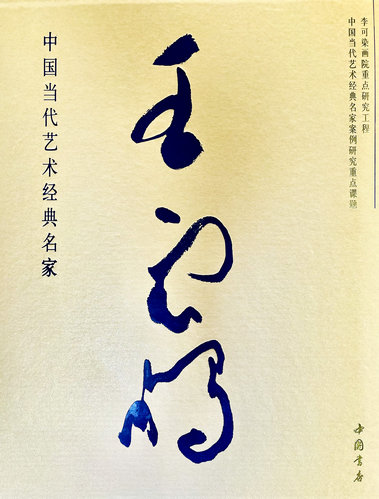 李可染画院重点研究工程
中国当代艺术经典名家案例研究重点课题
王
中国当代艺术经典名家
中国书店